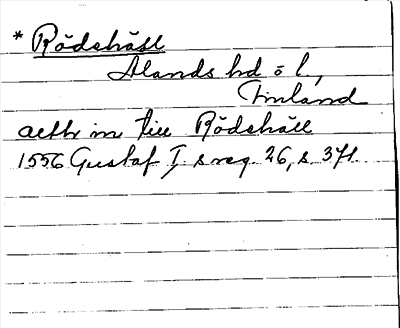 * Rödehäll
Ålands hd o l,
Finland
aeth in till Rödehäll
1556 Gustaf I:s reg. 26, s. 371.